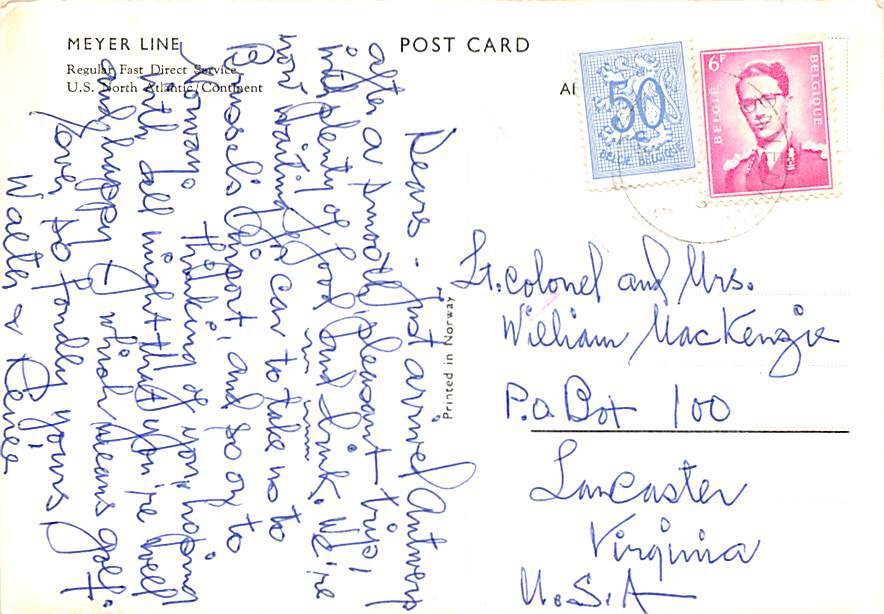 MEYER LINE
Regular Fast Direct Service
U.S. North Atlantic/Continent
POST CARD
50
BELGIE BELGIQUE
6F
BELGIË
BELGIQUE
Printed in Norway
Dears - Just arrived Antwerp
after a smooth, pleasant trip,
with plenty of food and drink. We're
now waiting for car to take us to
Brussels airport, and so on to
Norway.
Thinking of you, hoping
with all might that you're well
and happy & which means golf.
Love, so fondly yours,
Walter & Renee
Lt. Colonel and Mrs.
William MacKenzie
P.O. Box 100
Lancaster
Virginia
U.S.A